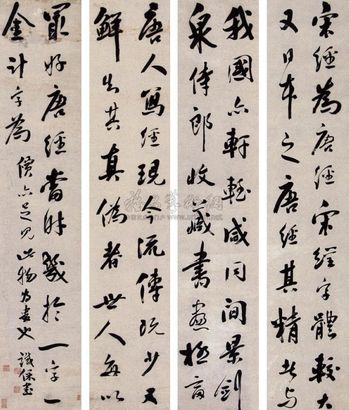 宋經為唐經宋經字體較大
又日本之唐經其精者与
我國亦軒輊咸同間景劍
泉侍郎收藏書畫極富
唐人寫經現今流傳既少又
鮮出其真偽者世人每以
最好唐經當時幾於一字一
金計字為價亦足見此物为